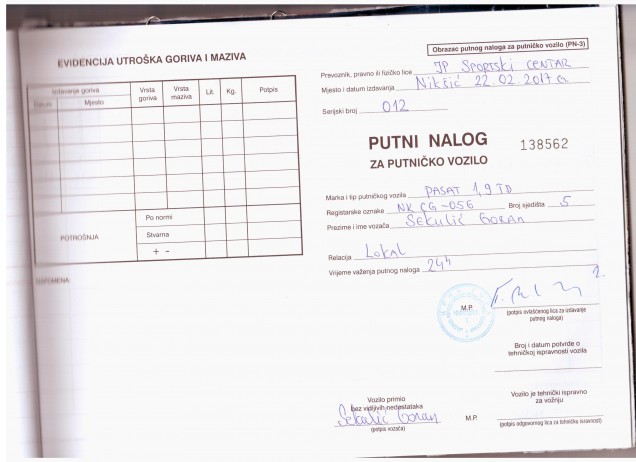 EVIDENCIJA UTROŠKA GORIVA I MAZIVA
Izdavanje goriva
Datum
Mjesto
Vrsta goriva
Vrsta maziva
Lit.
Kg.
Potpis
POTROŠNJA
Po normi
Stvarna
+ -
Obrazac putnog naloga za putničko vozilo (PN-3)
Prevoznik, pravno ili fizičko lice JP SPORTSKI CENTAR
Mjesto i datum izdavanja Nikšić 22.02.2017 G
Serijski broj 012
PUTNI NALOG
138562
ZA PUTNIČKO VOZILO
Marka i tip putničkog vozila PASAT 1,9 TD
Registarske oznake NK CG-056 Broj sjedišta 5
Prezime i ime vozača Sekulić Goran
Relacija LOKAL
Vrijeme važenja putnog naloga 24h
M.P.
(potpis ovlašćenog lica za izdavanje
putneg naloga)
Broj i datum potvrde o
tehničkoj ispravnosti vozila
Vozilo primio
bez vidljivih nedostataka
Sekulić Goran
(potpis vozača)
M.P.
Vozilo je tehnički ispravno
za vožnju
(potpis odgovornog lica za tehničku ispravnost)